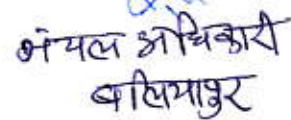 अंचल अधिकारी
बलियापुर